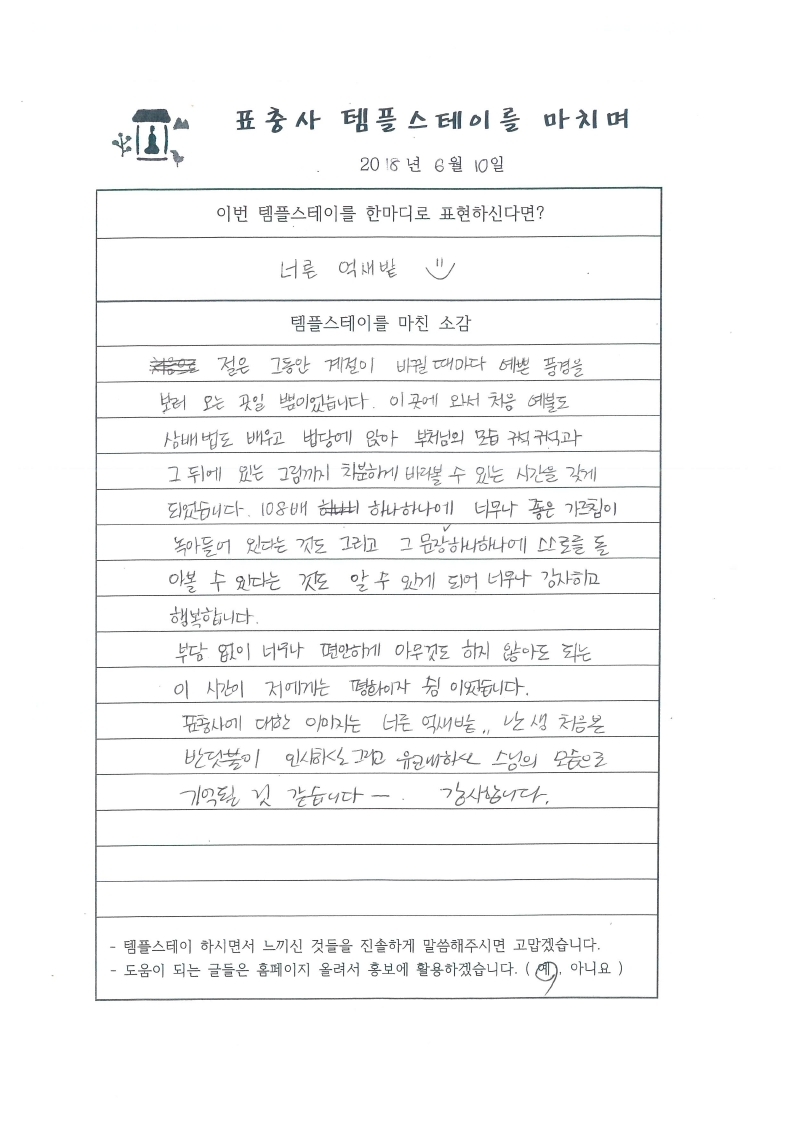 표충사 템플스테이를 마치며
2018년 6월 10일
이번 템플스테이를 한마디로 표현하신다면?
너른 억새밭
템플스테이를 마친 소감
처음으로 절은 그동안 계절이 바뀔 때마다 예쁜 풍경을
보러 오는 곳일 뿐이었습니다. 이 곳에 와서 처음 예불도
삼배법도 배우고 법당에 앉아 부처님의 모습 구석구석과
그 뒤에 있는 그림까지 차분하게 바라볼 수 있는 시간을 갖게
되었습니다. 108배 하나하나에 너무나 좋은 가르침이
녹아들어 있다는 것도 그리고 그 문장 하나하나에 스스로를 돌
아볼 수 있다는 것도 알 수 있게 되어 너무나 감사하고
행복합니다.
부담 없이 너무나 편안하게 아무것도 하지 않아도 되는
이 시간이 저에게는 평화이자 쉼 이었습니다.
표충사에 대한 이미지는 너른 억새밭,, 난생 처음본
반딧불이 인사하실 그리고 스님의 모습으로
기억될 것 같습니다 ―. 감사합니다.
- 템플스테이 하시면서 느끼신 것들을 진솔하게 말씀해주시면 고맙겠습니다.
- 도움이 되는 글들은 홈페이지 올려서 홍보에 활용하겠습니다. ( 예, 아니요 )